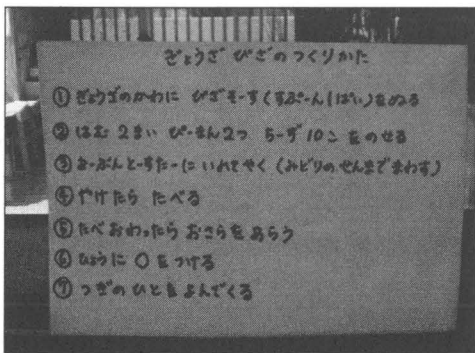 ぎょうざ ぴざのつくりかた
① ぎょうざのかわに ぴざそーすくすぷーん(ぱい)をぬる
② はむ 2まい ぴーまん2つ ちーず10こをのせる
③ おーぶんとーすたーにいれてやく(みどりのせんまでまわす)
④ やけたら たべる
⑤ たべおわったら おさらをあらう
⑥ ひょうに ○をつける
⑦ つぎのひとをよんでくる